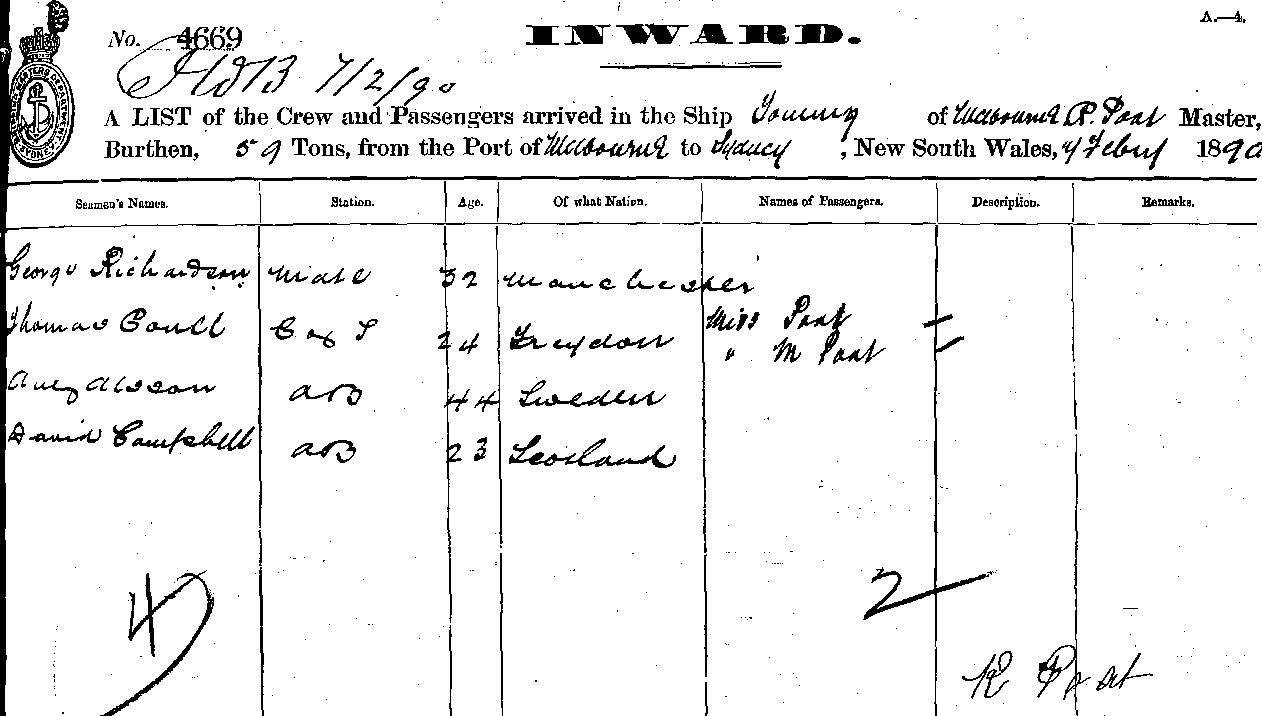 A.—4.
No. 4669 INWARD.
7/2/90
A LIST of the Crew and Passengers arrived in the Ship of Melbourne R. Poat Master,
Burthen, 59 Tons, from the Port of Melbourne to Sydney, New South Wales, 7 Feby 1890
Seamen's Names. Station. Age. Of what Nation. Names of Passengers. Description. Remarks.
George Richardson Mate 32 Manchester
Miss Poat
Thomas 24 Croydon
" M Poat
AB 44 Sweden
David Campbell AB 23 Scotland
4 2
R Poat